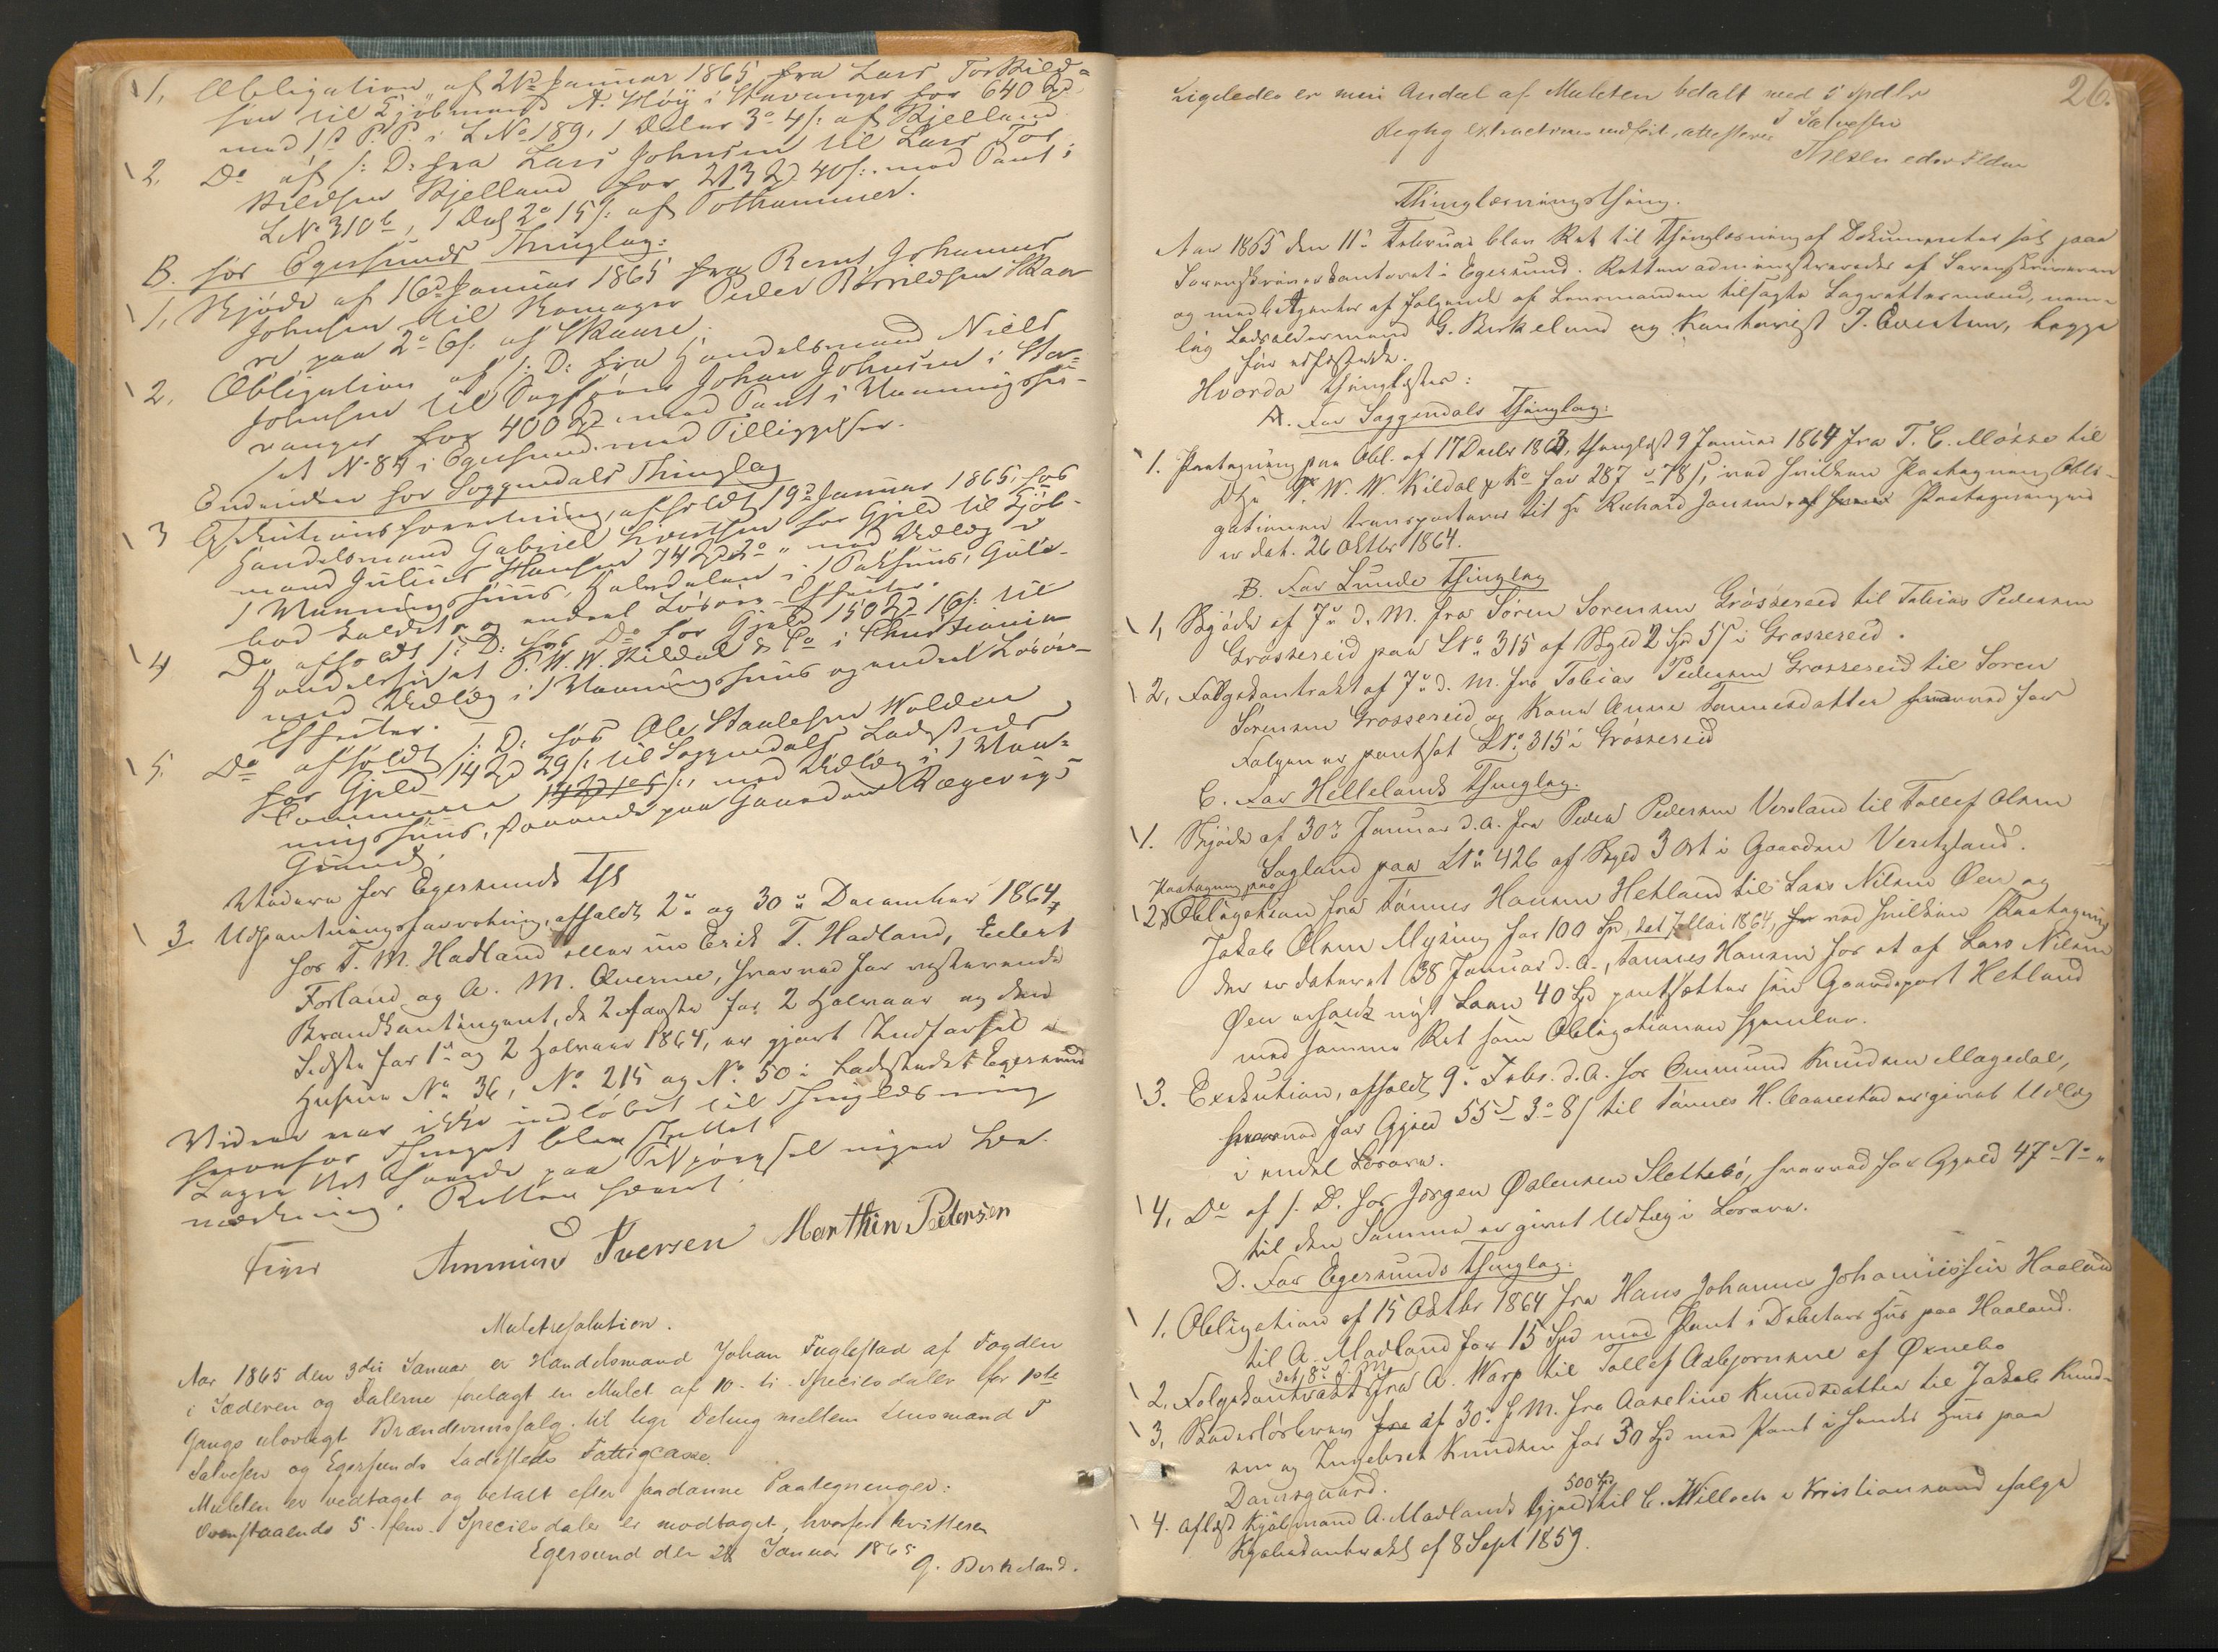 1, Obligation af 21de Januar 1865 fra Lars Torkild-
sen til Kjøbmand A. Høy i Stavanger for 640 Spd
med 1st P. P. i L No 189, 1 Daler 3o 4 s. af Kjelland
2. Do af s: D: fra Lars Johnsen til Lars Tor
kildsen Kjelland for 213 Spd 40 s: mod Pant i
L No 310b, 1 Dal 2o 15 s: af Pothammer.
B. for Egersunds Thinglag:
1, Skjøde af 16de Januar 1865 fra Bernt Johannes
Johnsen til Peder Skaar
re paa 2o 6 s. af Skaare.
2, Obligation af s: D: fra Handelsmand Niels
Johnsen til Sagfører Johan Johnsen i Sta-
vanger for 400 Spd mod Pant i Vaaningshu-
set No 84 i Egersund med Tilliggelser.
Endvidere for Soggendals Thinglag
3 Exekutionsforretning, afholdt 19de Januar 1865, hos
Handelsmand Gabriel for Gjeld til Kjøb-
mand Julius Hansen 74 Spd 2o " med Udlæg i
1 Vaaningshuus, Halvdelen i 1 Pakhuus, Gule-
bod kaldet, og endeel Løsøre-Effecter.
4 Do afholdt s: D: hos Do for Gjeld 150 Spd 16 s. til
Handelshuset P. W. W. Kildal & Co i Christiania
med Udlæg i 1 Vaaningshuus og endeel Løsøre-
Effecter.
5. Do afholdt s: D: hos Ole Staalesen Wolden
for Gjeld 14 Spd 29 s: til Soggendals Ladesteds
Commune med Udlæg i 1 Vaa-
ningshuus, staaende paa Gaarden Rægevigs
Grund.
Videre for Egersunds Thl
3. Udpantningsforretning, afholdt 2den og 30te December 1864
hos T. M. Hadland eller nu Erik T. Hadland, Eilert
Forland og A. M. Qverme, hvorved for resterende
Brandkontingent, de 2 første for 2 Halvaar og den
Sidste for 1ste og 2 Halvaar 1864, er gjort Indførsel i
Husene No 36, No 215 og No 50 i Ladestedet Egersund
Videre var ikke indløbet til Thinglæsning
hvorefter Thinget blev sluttet.
Lagrettet havde paa Tilspørgsel ingen Be-
mærkning. Retten hævet.
Feyer Ammund Iversen Marthin Pedersen
Mulctresolution.
Aar 1865 den 3die Januar er Handelsmand Johan Fuglestad af Fogden
i Jæderen og Dalerne forelagt en Mulct af 10 - ti - Speciesdaler for 1ste
Gangs ulovligt Brændevinssalg til lige Deling mellem Lensmand T
Salvesen og Egersunds Ladesteds Fattigcasse.
Mulcten er vedtaget og betalt efter saadanne Paategninger:
Ovenstaaende 5 - fem - Speciesdaler er modtaget, hvorfor kvitteres
Egersund den 28 Januar 1865
G. Birkeland.
26.
Ligeledes er min Andel af Mulcten betalt med 5 Spdlr
T Salvesen
Rigtig extractvis indført, attesterer
Thinglæsningsthing.
Aar 1865 den 11te Februar blev Ret til Thinglæsning af Dokumenter sat paa
Sorenskriverkontoret i Egersund. Retten administreredes af Sorenskriveren
og med betjentes af følgende af Lensmanden tilsagte Lagrettesmænd, nem-
lig Ladsoldermand G. Birkeland og Kontorist T. Evertsen, begge
før edfæstede.
Hvorda thinglæstes:
A. For Soggendals Thinglag:
1. Paategning paa Obl. af 17 Decbr 1863, thinglæst 9 Januar 1864 fra T. C. Mósse til
P. W. W. Kildal & Ko for 287 Spd 78 s, ved hvilken Paategning Obli-
gationen transporteres til Hr Richard Jansen. Paategningen
er dat. 26 Oktbr 1864.
B. For Lunde Thinglag
1, Skjøde af 7de d. M. fra Søren Sørensen Gróssereid til Tobias Pedersen
Gróssereid paa LNo 315 af Skyld 2 Spd 5 s i Grossereid.
2, Følgekontrakt af 7de d. M. fra Tobias Pedersen Grossereid til Soren
Sörensen Grossereid og Kone Anne Tonnesdatter hvorved for
Følgen er pantsat LNo 315 i Gróssereid
C. For Hellelands Thinglag.
1. Skjöde af 30te Januar d.A. fra Peder Pedersen Versland til Tollef Olsen
Sagland paa LNo 426 af Skyld 3 Ort i Gaarden Versland.
Paategning paa
2, Obligation fra Tønnes Hansen Hetland til Lars Nilsen Øen og
Jakob Olsen Mysing for 100 Spd, dat. Mai 1864, ved hvilken Paategning
der er dateret 38 Januar d.A., Tønnes Hansen for et af Lars Nilsen
Øen erholdt nyt Laan 40 Spd pantsætter sin Gaardspart Hetland
med samme Ret som Obligationen hjemler.
3. Exekution, afholdt 9de Febr. d.A. hos Ommund Knudsen Magedal,
hvorved for Gjeld 55 Spd 3o 8 s til Tönnes H. Aarrestad er givet Udlæg
i endel Lösøre.
4, Do af s. D. hos Jörgen Øvlensen Slettebö, hvorved for Gjæld 47 Spd 1o "
til den Samme er givet Udlæg i Losøre.
D. For Egersunds Thinglag:
1, Obligation af 15 Oktbr 1864 fra Hans Johannes Johannessen Haaland
til A. Madland for 15 Spd mod Pant i Debitors Hus paa Haaland.
2, Følgekontrakt dat. 8de d. M. fra A. Warp til Tollef Asbjørnsen af Øxnebo
3, Skadeslösbrev fra af 30te f. M. fra Aaseline Knudsdatter til Jakob Knud-
sen og Ingebret Knudsen for 30 Spd mod Pant i hendes Hus paa
Damsgaard.
4. Aflæst Kjöbmand A. Madlands Gjæld 500 Spd til C. Willoch i Kristiansand ifølge
Kjøbekontrakt af 8 Sept 1859.